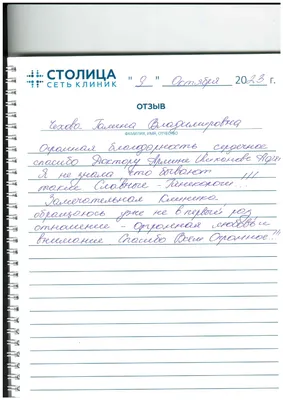 СТОЛИЦА
СЕТЬ КЛИНИК
"9" Октября 2023 г.
ОТЗЫВ
Чехова Галина Владимировна
ФАМИЛИЯ, ИМЯ, ОТЧЕСТВО
Огромная благодарность сердечное
спасибо Доктору
Я не знала, что бывают
такие Славные - Гинекологи!!!
Замечательная Клиника
обращаюсь уже не в первый раз
отношение - огромная любовь и
внимание Спасибо Всем Огромное!!!